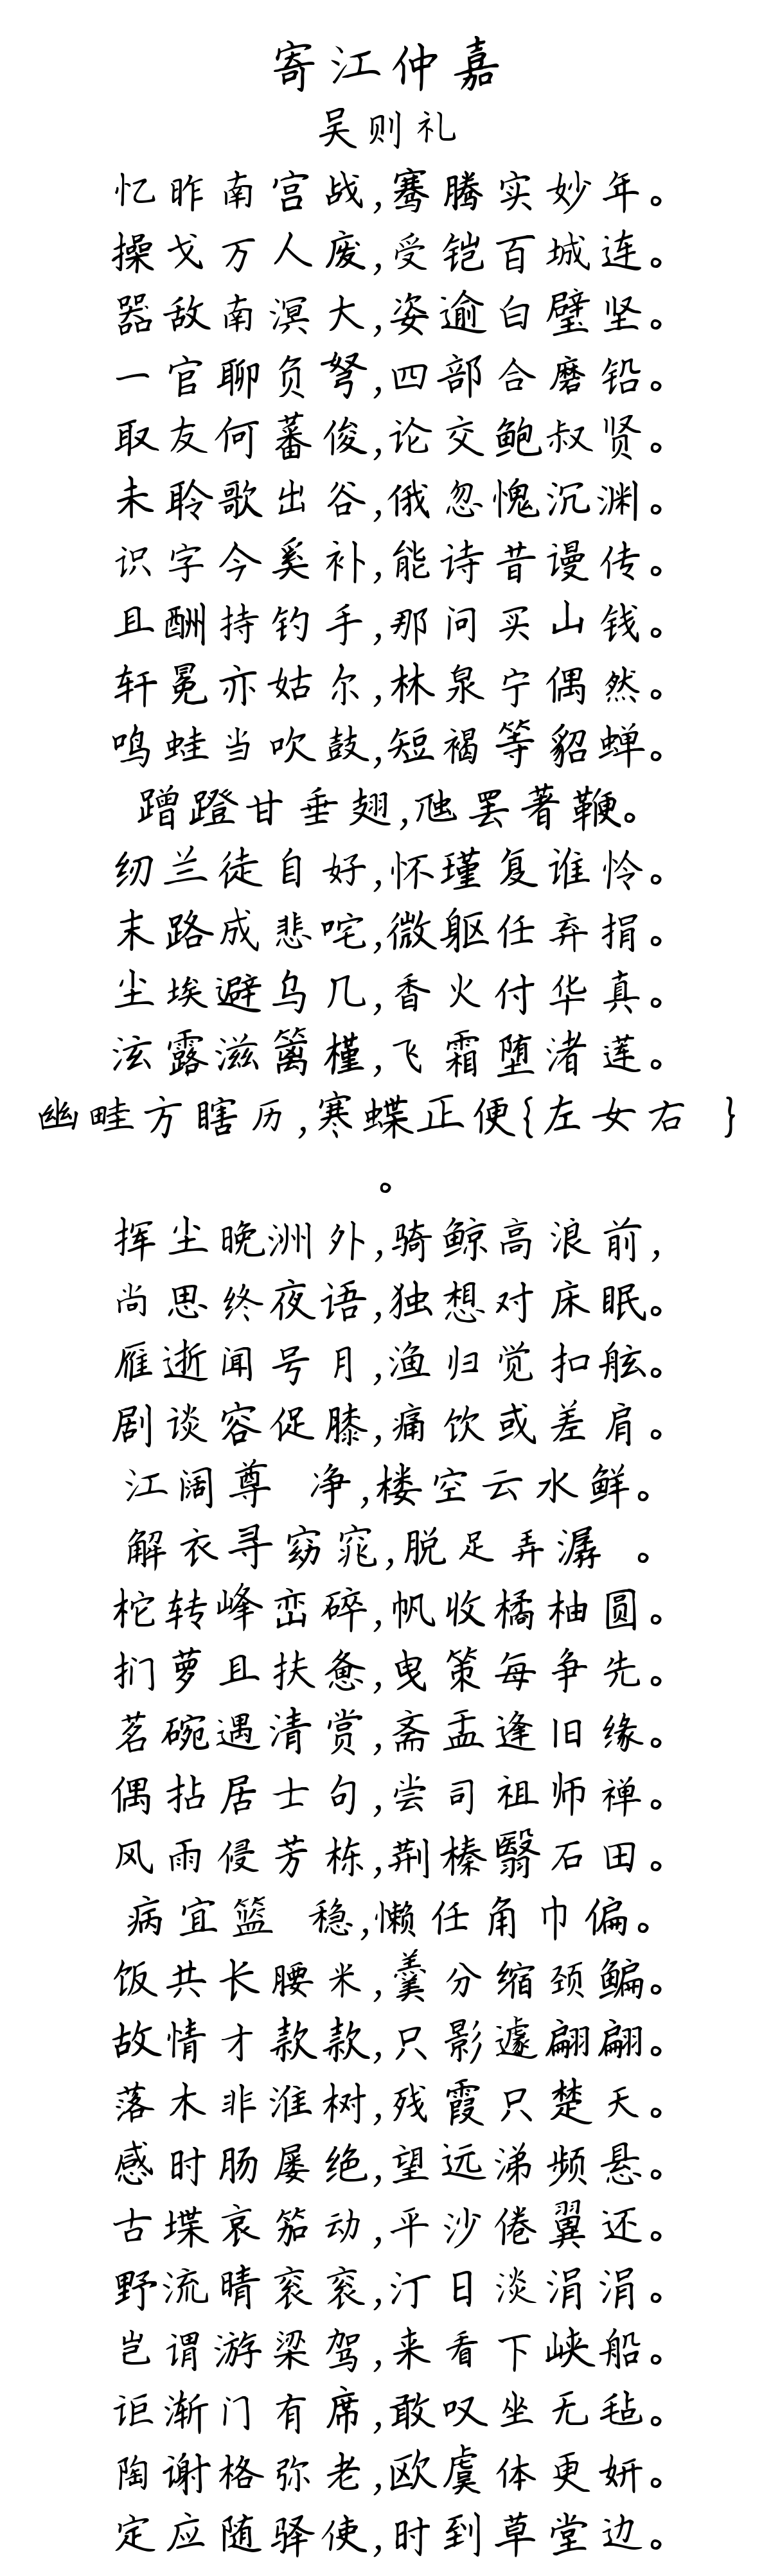 寄江仲嘉
吴则礼
忆昨南宫战,骞腾实妙年。
操戈万人废,受铠百城连。
器敌南溟大,姿逾白璧坚。
一官聊负弩,四部合磨铅。
取友何蕃俊,论交鲍叔贤。
未聆歌出谷,俄忽愧沉渊。
识字今奚补,能诗昔谩传。
且酬持钓手,那问买山钱。
轩冕亦姑尔,林泉宁偶然。
鸣蛙当吹鼓,短褐等貂蝉。
蹭蹬甘垂翅,虺罢著鞭。
纫兰徒自好,怀瑾复谁怜。
末路成悲咤,微躯任弃捐。
尘埃避乌几,香火付华真。
泫露滋篱槿,飞霜堕渚莲。
幽畦方瞎历,寒蝶正便{左女右 }
。
挥尘晚洲外,骑鲸高浪前,
尚思终夜语,独想对床眠。
雁逝闻号月,渔归觉扣舷。
剧谈容促膝,痛饮或差肩。
江阔尊 净,楼空云水鲜。
解衣寻窈窕,脱足弄潺 。
柁转峰峦碎,帆收橘柚圆。
扪萝且扶惫,曳策每争先。
茗碗遇清赏,斋盂逢旧缘。
偶拈居士句,尝司祖师禅。
风雨侵芳栋,荆榛翳石田。
病宜篮 稳,懒任角巾偏。
饭共长腰米,羹分缩颈鳊。
故情才款款,只影遽翩翩。
落木非淮树,残霞只楚天。
感时肠屡绝,望远涕频悬。
古堞哀笳动,平沙倦翼还。
野流晴衮衮,汀日淡涓涓。
岂谓游梁驾,来看下峡船。
讵渐门有席,敢叹坐无毡。
陶谢格弥老,欧虞体更妍。
定应随驿使,时到草堂边。